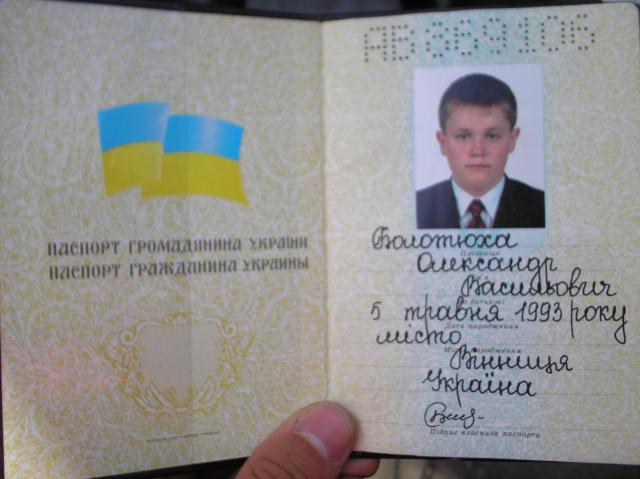 ПАСПОРТ ГРОМАДЯНИНА УКРАЇНИ
ПАСПОРТ ГРАЖДАНИНА УКРАИНЫ
АВ 869106
Болотюха
Прізвище
Олександр
Васильович
По батькові
5 травня 1993 року
Дата народження
місто
Місце народження
Вінниця
Україна
Підпис власника паспорта